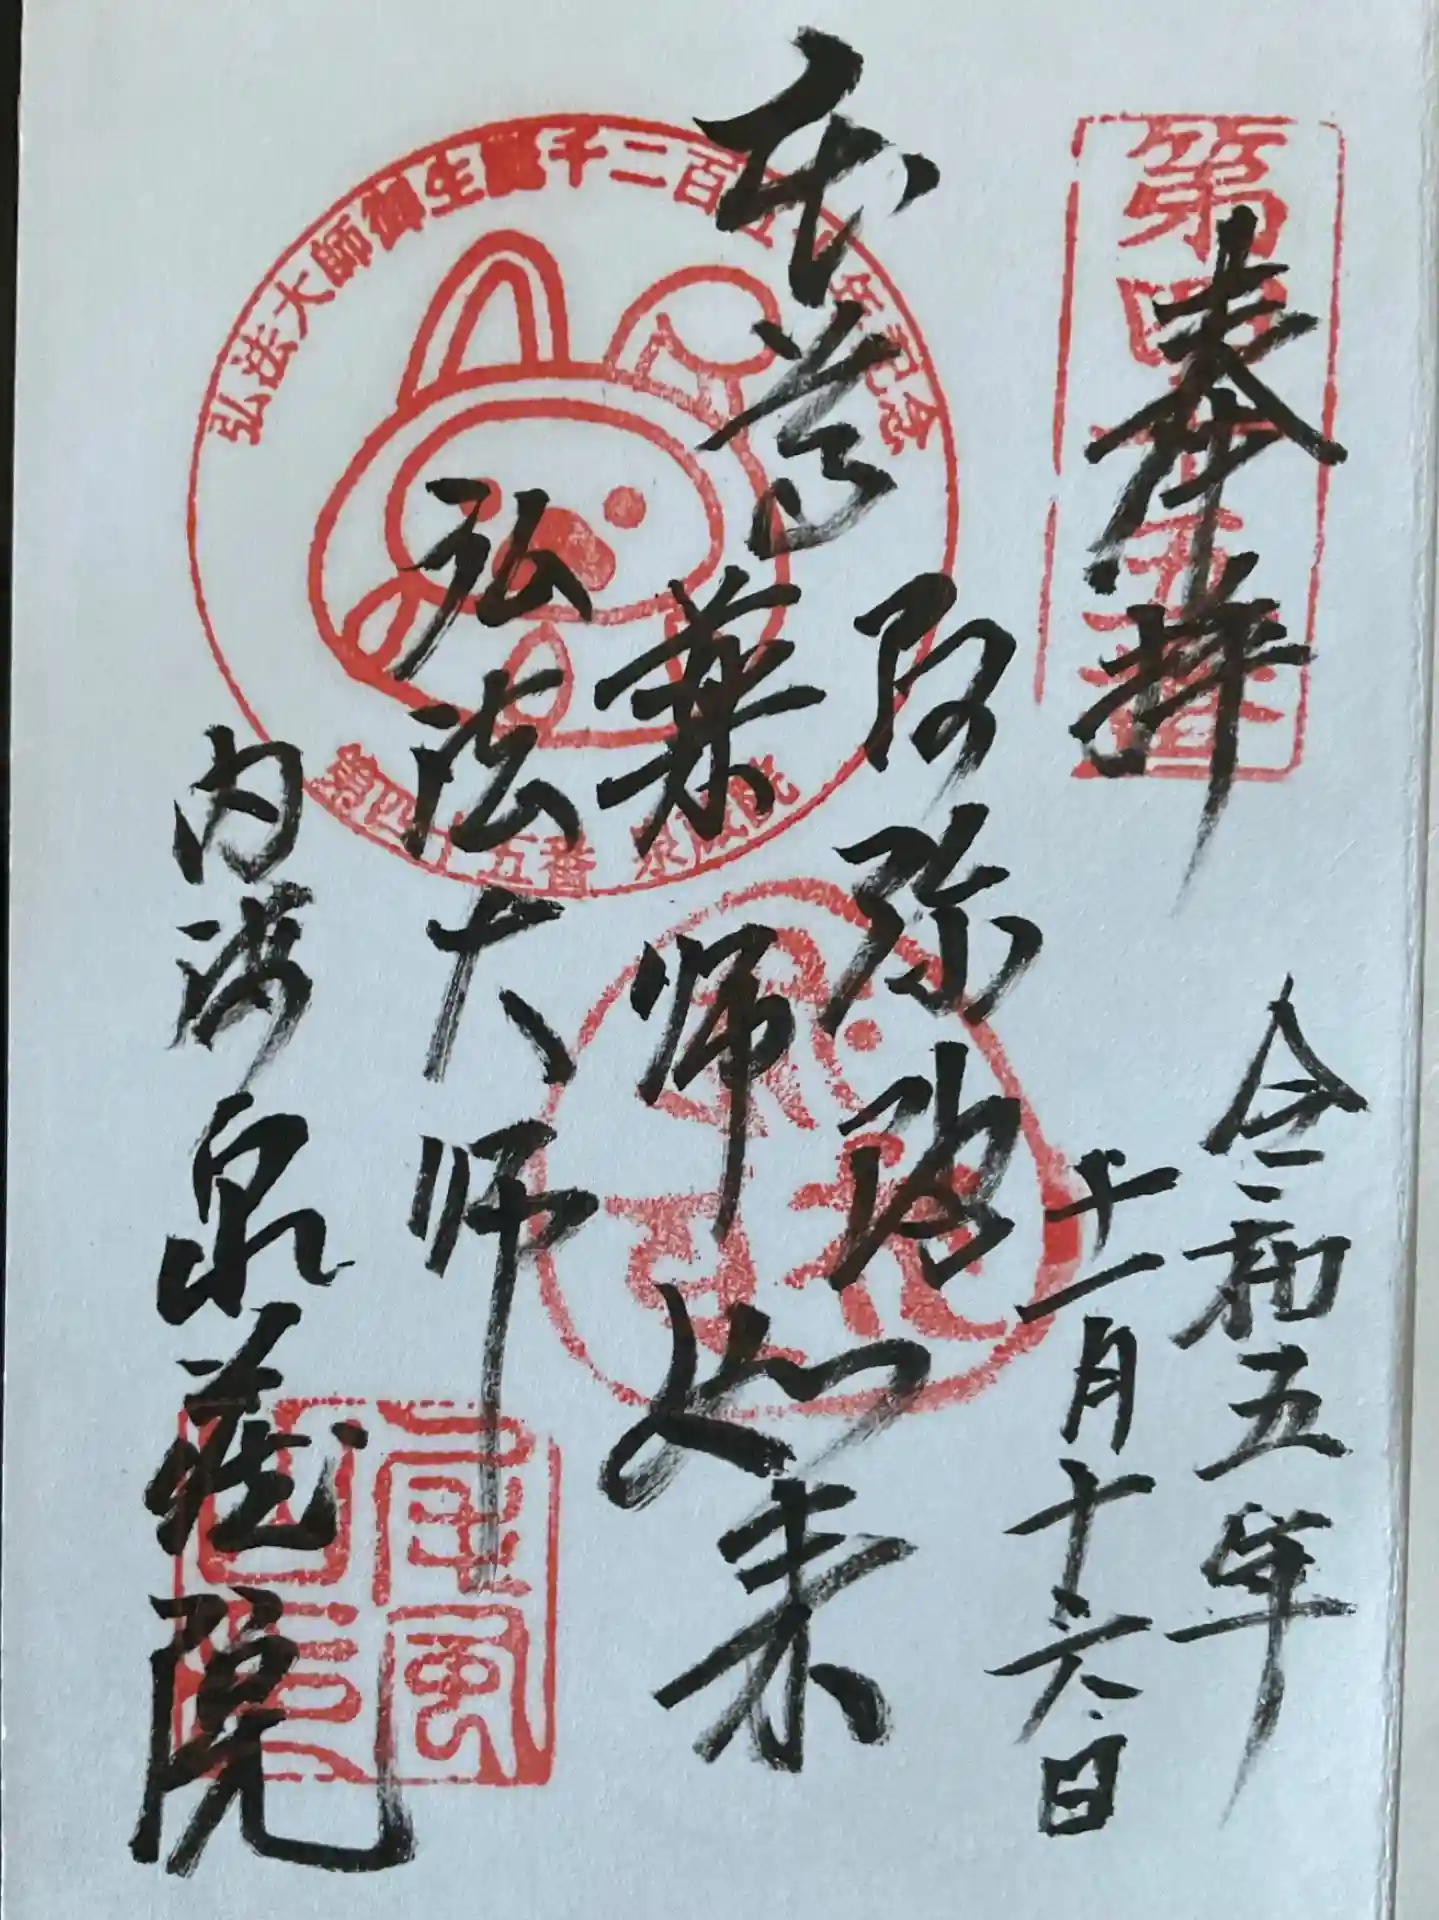 奉拝
令和五年
十一月十六日
本尊
阿弥陀
薬師如来
弘法大師
内海泉蔵院
弘法大師御生誕千二百五十年記念
第四十五番 泉蔵院
第四十五番